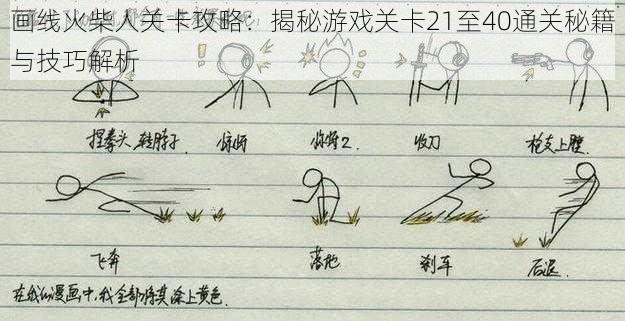 画线火柴人关卡攻略：揭秘游戏关卡21至40通关秘籍
与技巧解析
捏拳头,转脖子 惊讶 惊讶2. 收刀 枪支上膛.
飞奔 落地 刹车 后退.
在我的漫画中,我全部将其涂上黄色.